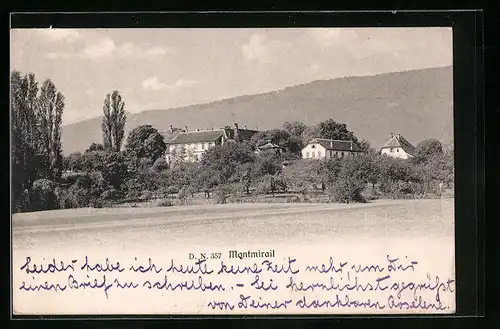 D. N. 357 Montmirail
Leider habe ich heute keine Zeit mehr, um dir
einen Brief zu schreiben. - Sei herzlichst gegrüsst
von deiner dankbaren Roselene.